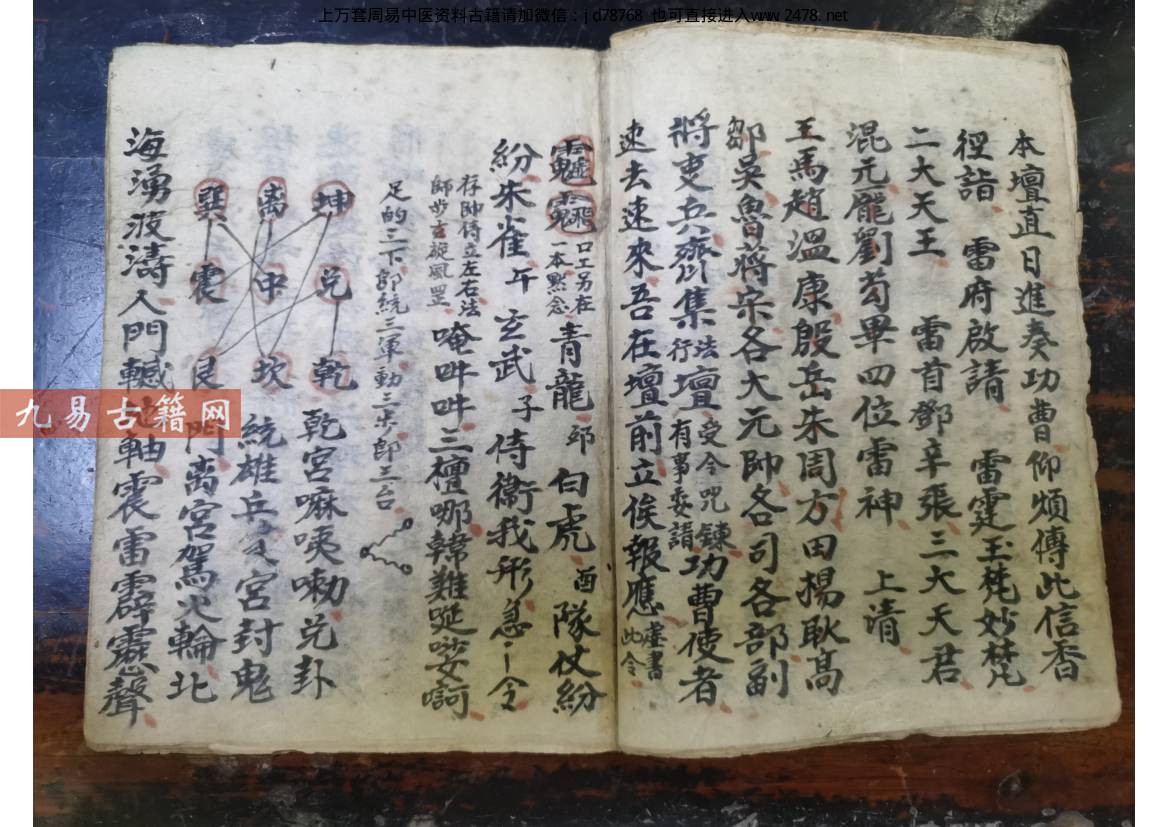 上万套周易中医资料古籍请加微信：jd78768 也可直接进入www.2478.net
本壇直日進奏功曹仰煩傳此信香
徑詣 雷府啟請 雷霆玉梵妙梵
二大天王 雷首鄧辛張三大天君
混元龐劉苟畢四位雷神 上清
王馬趙溫康殷岳朱周方田揚耿高
鄒吳魯蔣宋各大元帥各司各部副
將吏兵齊集法行壇有事委請受今咒錬功曹使者
速去速來吾在壇前立俟報應虛書此令
口工另在一本默念青龍卯白虎酉隊仗紛
紛朱雀午玄武子侍衞我形急令
存帥侍立左右法
師步玄旋風罡
唵吽吽三檀哪韓難哫娑訶
足的三下郎統三軍動三步郎三台
坤 兌 乾 乾宮嘛咦嘞兌卦
离 中 坎 統雄兵艮宮封鬼
巽 震 艮 門离宮駕火輪北
海湧波濤人門轗地軸震雷霹靂聲
九易古籍网